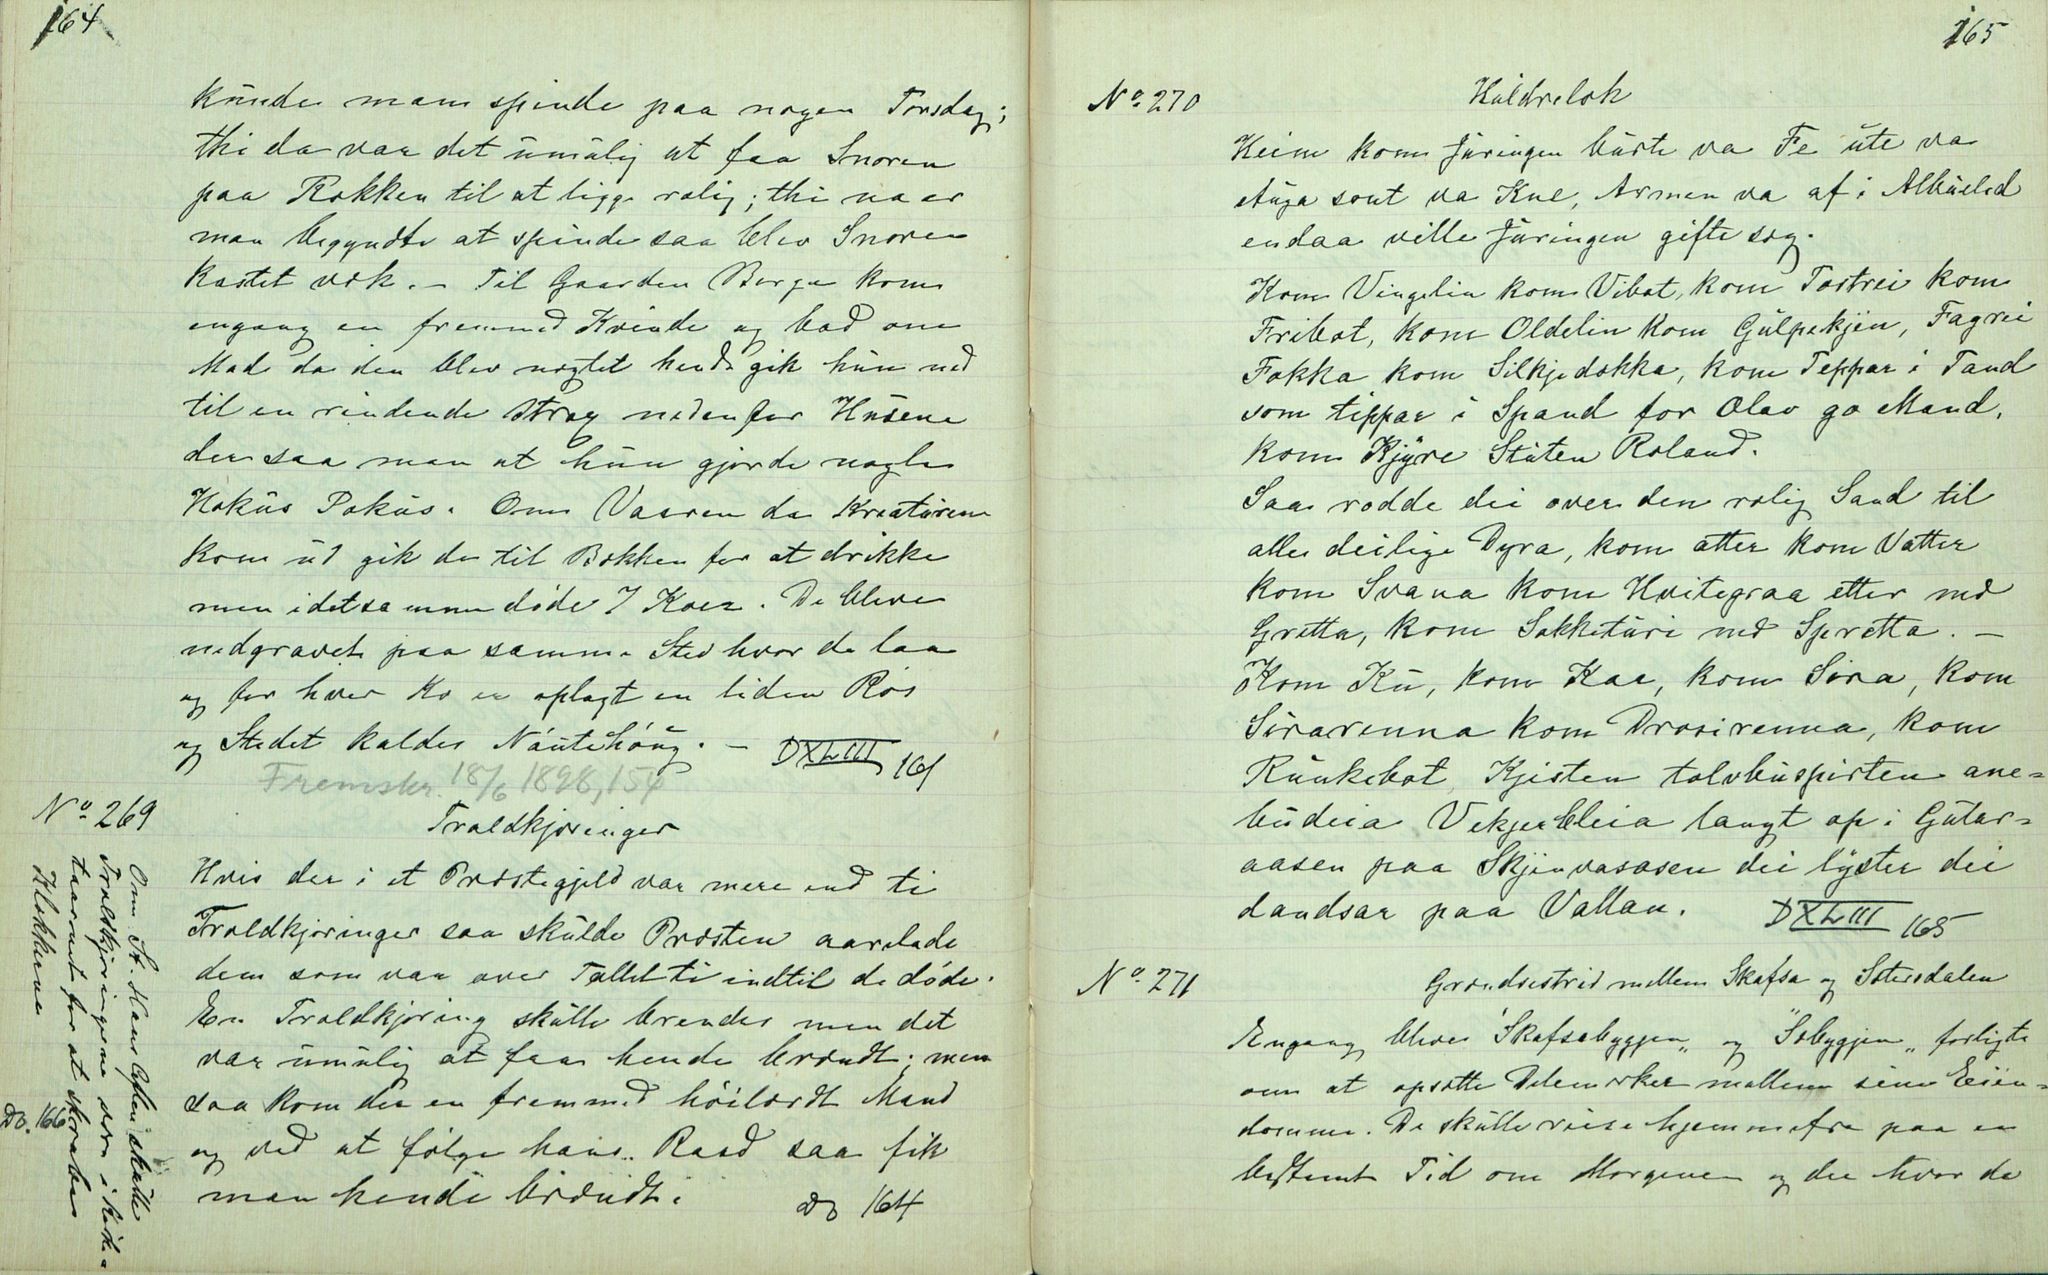 164
kunde man spinde paa nogen Torsdag;
thi da var det umulig at faa Snoren
paa Rokken til at ligge rolig; thi naar
man begyndte at spinde saa blev Snoren
kastet væk. – Til Gaarden Berge kom
engang en fremmed Kvinde og bad om
Mad da den blev nægtet hende gik hun ned
til en rindende Strøg nedenfor Husene
der saa man at hun gjorde nogle
Hokus Pokus. Om Vaaren da Kreaturene
kom ud gik de til Bækken for at drikke
men i det samme døde 7 Køer. De bleve
nedgravet paa samme Sted hvor de laa
og for hver Ko er oplagt en liden Røs
og Stedet kaldes Nautehaug. – DXLIII 161
Fremskr. 18/6 1898, 154
No 269
Troldkjøringer
Hvis der i et Præstegjeld var mere end ti
Troldkjøringer saa skulde Præsten aarelade
dem som var over Tallet ti indtil de døde.
En Troldkjøring skulle brendes men det
var umulig at faa hende brændt; men
saa kom der en fremmed høilærdt Mand
og ved at følge hans Raad saa fik
man hende brændt. Do 164
Om St. Hans Aften skulle
Troldkjøringerne være i Kirke-
taarnet for at skrabe
Klokkerne
Do. 166
165
No 270
Huldrelok
Keim kom Juringen burte va Fe ute va
Auga sout va Kne, Armen va af i Albueled
endaa ville Juringen gifte sog.
Kom Vingelin kom Vibot, kom Tostrei kom
Fribot, kom Oldelin kom Gulpekjin, Fagrei
Fokka kom Silkjedokka, kom Teppar i Tand
som tippar i Spand for Olav go Mand,
kom Kjyre Stuten Roland.
Saa rodde dei over den rolig Sand til
alle deilige Dyra, kom atter kom Vatter
kom Svana kom Hvitegraa etter med
Gretta, kom Sokketuri med Spretta. –
Kom Ku, kom Kaa, kom Sira, kom
Sirarenna kom Drosirenna, kom
Runkebot, Kjisten tolvbuspisten ane-
budeia Vekjerbleia langt op i Gutar-
aasen paa Skjinvasaasen dei lyster dei
dandsar paa Vallan. DXLIII 165
No 271
Grændsestrid mellem Skafsa og Sætersdalen
Engang bleve "Skafsabyggjen" og "Sæbyggjen" forligte
om at opsætte Delemærker mellem sine Eien-
domme. De skulle reise hjemmefra paa en
bestemt Tid om Morgenen og der hvor de